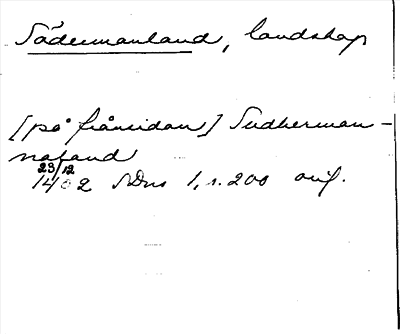 Södermanland, landskap
[på frånsidan] Sudherman-
naland
23/12
1402 SDns 1, s. 200 orig.